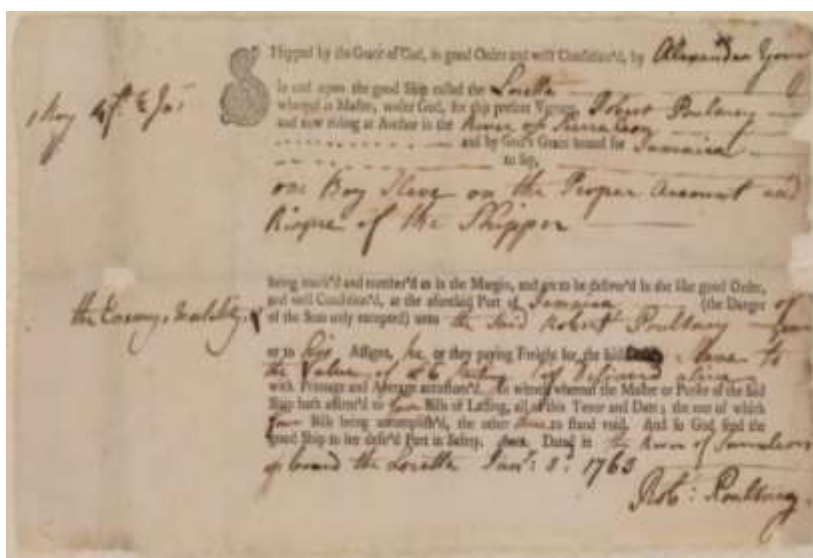 Shipped by the Grace of God, in good Order and well Condition'd, by Alexander
In and upon the good Ship called the Loretta
whereof is Master, under God, for this present Voyage, Robert Poultney
and now riding at Anchor in the River of Sierraleon
and by God's Grace bound for Jamaica
to say,
one Boy Slave on the Proper Account and
Risque of the Shipper
being mark'd and number'd as in the Margin, and are to be deliver'd in the like good Order,
and well Condition'd, at the aforesaid Port of Jamaica (the Danger of
the Enemy, Mortality, &
of the Seas only excepted) unto the said Robert Poultney
or to his Assigns, he or they paying Freight for the said Slave to
the Value of £6 if Delivered alive
with Primage and Average accustom'd. In witness whereof the Master or Purser of the said
Ship hath affirm'd to four Bills of Lading, all of this Tenor and Date; the one of which
four Bills being accomplish'd, the other three to stand void. And so God send the
good Ship to her desir'd Port in Safety. Dated in the River of Sierraleon
on board the Loretta Jan: 8: 1763
Rob: Poultney